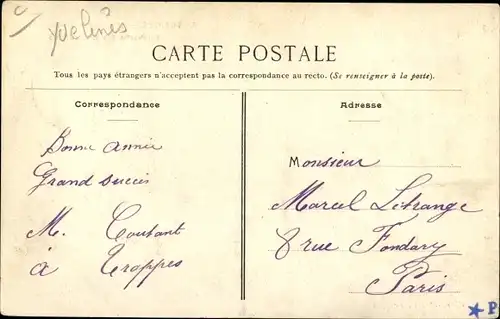 Yvelines
CARTE POSTALE
Tous les pays étrangers n'acceptent pas la correspondance au recto. (Se renseigner à la poste).
Correspondance
Bonne année
Grand succès
M. Coutant
à Trappes
Adresse
Monsieur
Marcel Létrange
8 rue Fondary
Paris
P